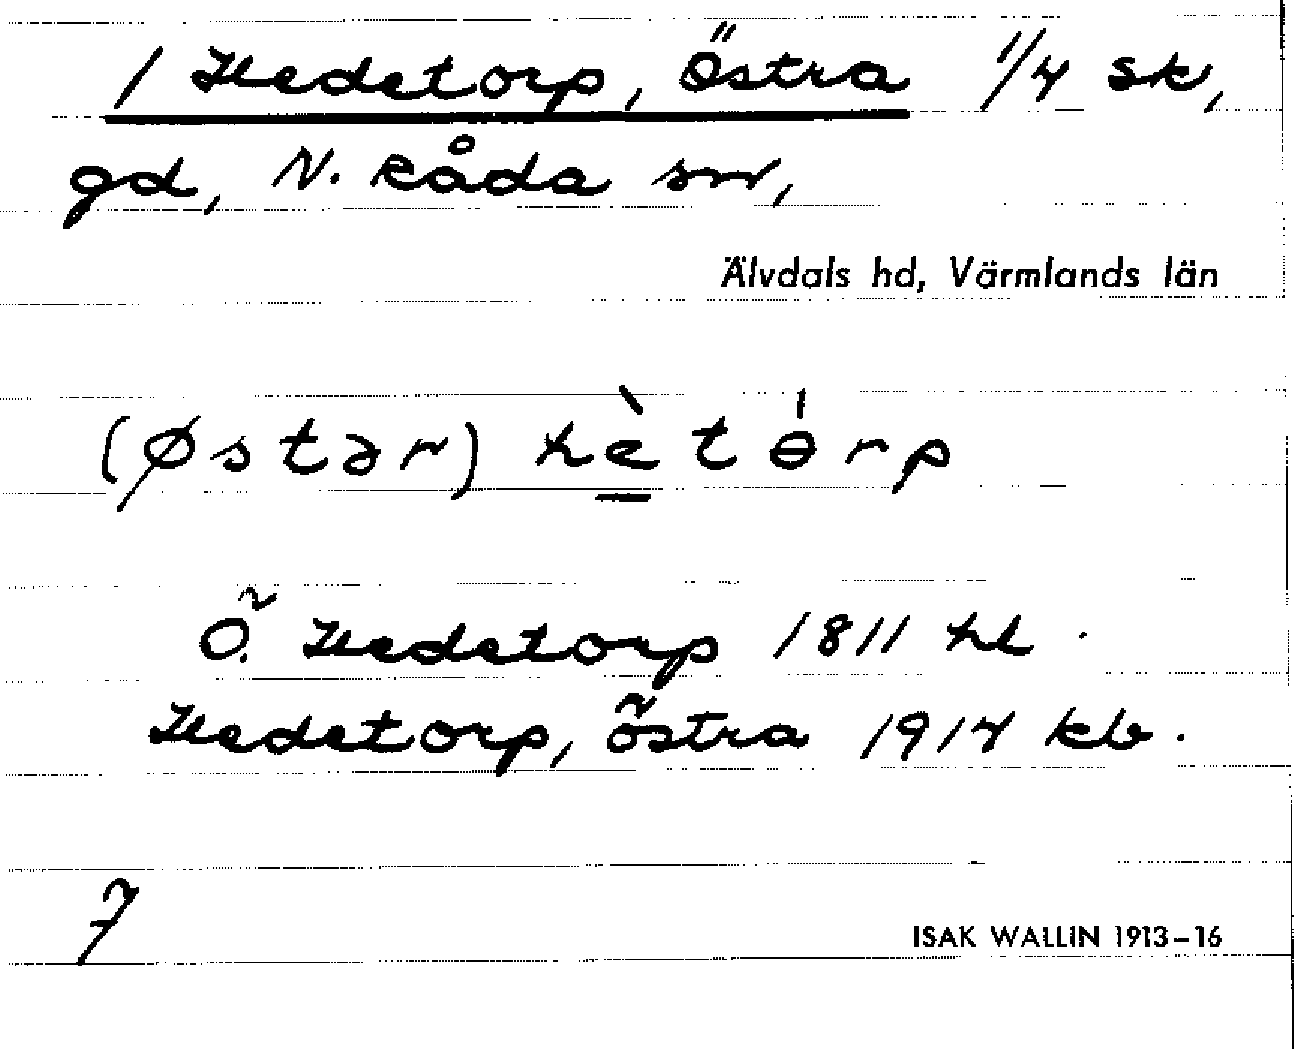 1 Hedetorp, Östra 1/4 sk,
gd, N. Råda sn,
Älvdals hd, Värmlands län
(østər) hètɵ́rp
Ö. Hedetorp 1811 hl.
Hedetorp, östra 1914 kb.
7
ISAK WALLIN 1913–16